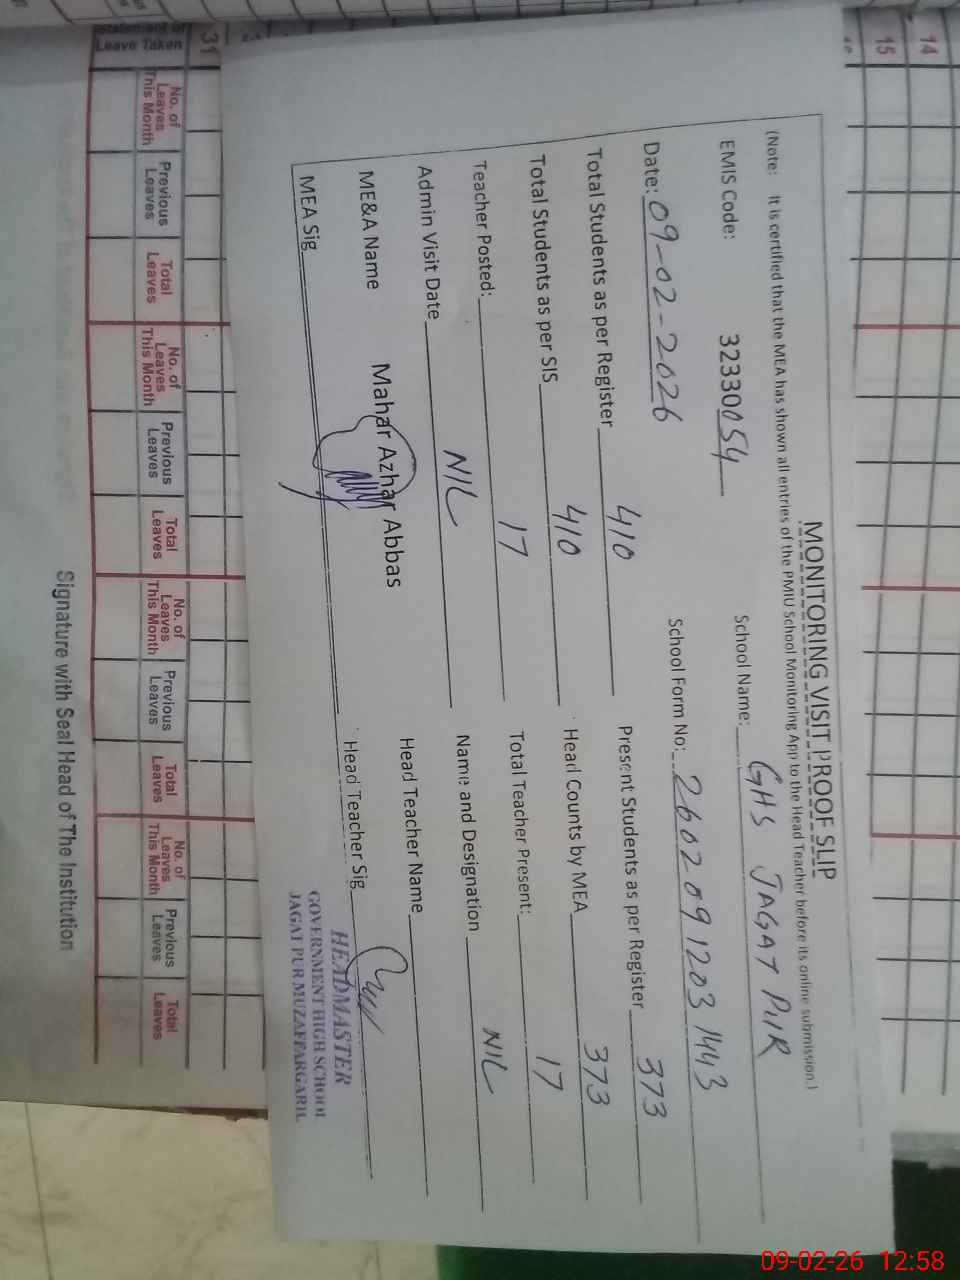 MONITORING VISIT PROOF SLIP
(Note: It is certified that the MEA has shown all entries of the PMIU School Monitoring App to the Head Teacher before its online submission.)
EMIS Code: 32330054 School Name: GHS JAGAT PUR
Date: 09-02-2026 School Form No: 2602091203 1443
Total Students as per Register 410 Present Students as per Register 373
Total Students as per SIS 410 Head Counts by MEA 373
Teacher Posted: 17 Total Teacher Present: 17
Admin Visit Date NIL Name and Designation NIL
ME&A Name Mahar Azhar Abbas Head Teacher Name
MEA Sig Head Teacher Sig
HEADMASTER
GOVERNMENT HIGH SCHOOL
JAGAT PUR MUZAFFARGARH
14
15
31
Statement of
Leave Taken
No. of Leaves This Month Previous Leaves Total Leaves No. of Leaves This Month Previous Leaves Total Leaves No. of Leaves This Month Previous Leaves Total Leaves No. of Leaves This Month Previous Leaves Total Leaves
Signature with Seal Head of The Institution
09-02-26 12:58